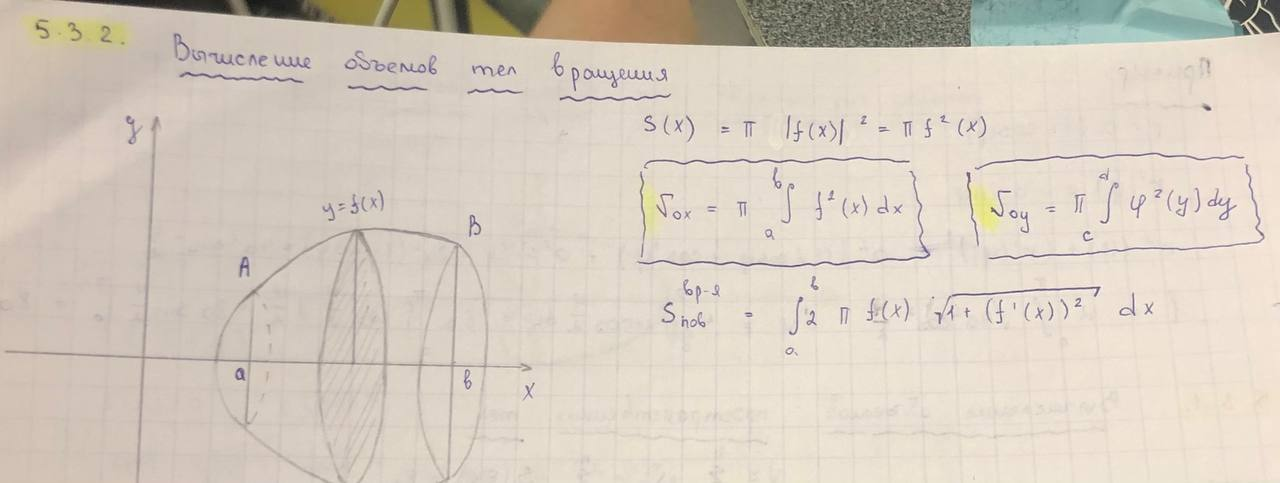 5.3.2. Вычисление объемов тел вращения
y
S(x) = π |f(x)|² = π f²(x)
y=f(x)
V_ox = π ∫_a^b f²(x) dx
V_oy = π ∫_c^d φ²(y) dy
A
B
S_пов^вр-я = ∫_a^b 2 π f(x) √(1 + (f'(x))²) dx
a
b
x